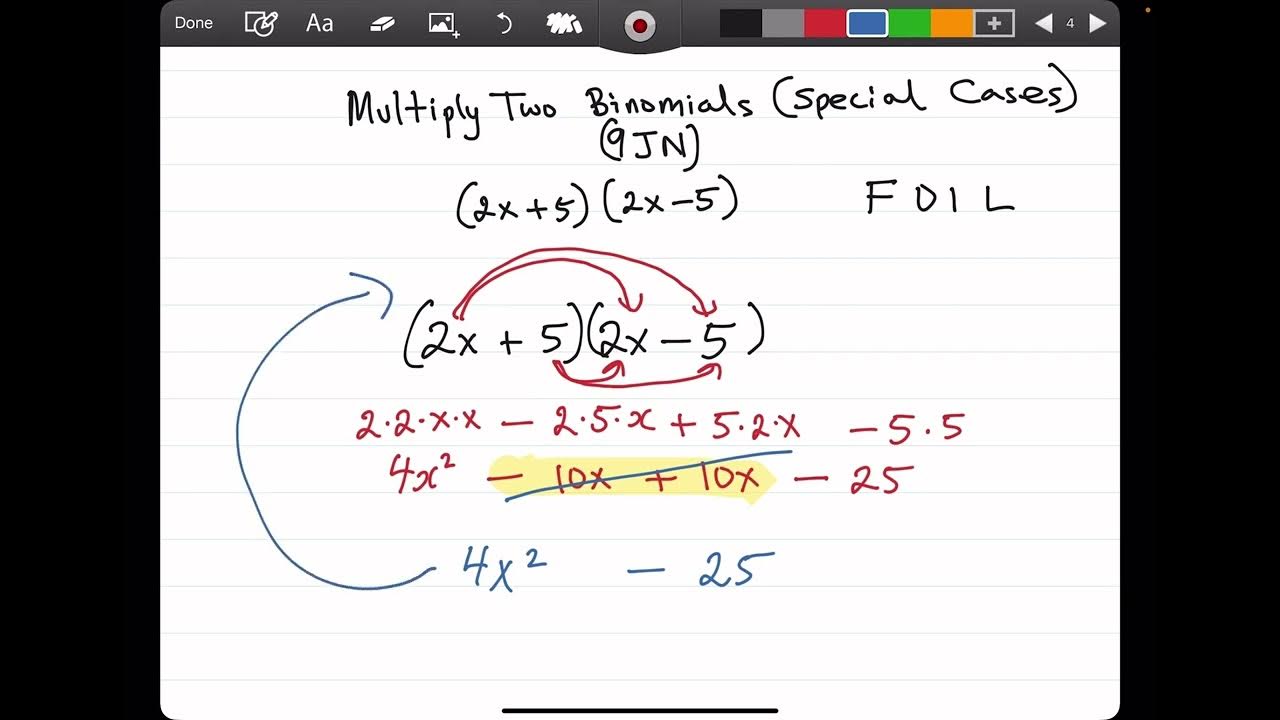 Done Aa 4
Multiply Two Binomials (Special Cases)
(9JN)
(2x+5)(2x-5) FOIL
(2x + 5)(2x - 5)
2·2·x·x - 2·5·x + 5·2·x - 5·5
4x² - 10x + 10x - 25
4x² - 25